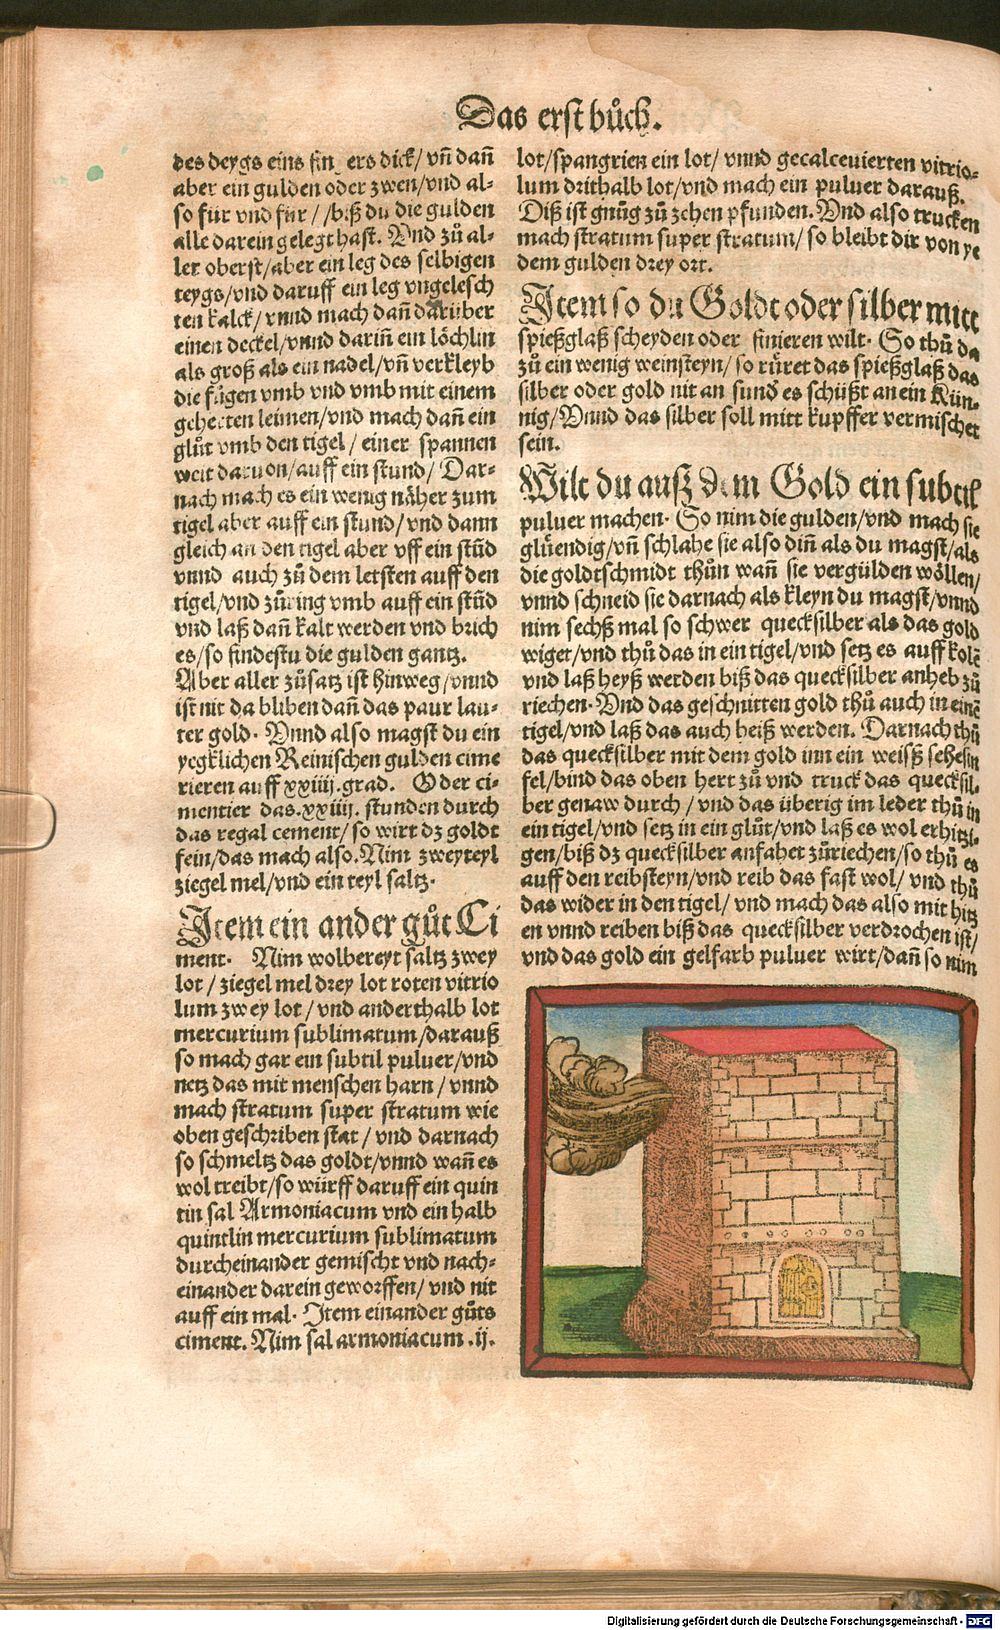 Das erst bůch.
des deygs eins fingers dick/ vn̄ dan̄
aber ein gulden oder zwen/vnd al⸗
so für vnd für//biß du die gulden
alle darein gelegt hast. Vnd zů al⸗
ler oberst/aber ein leg des selbigen
teygs/vnd daruff ein leg vngelesch
ten kalck/vnnd mach dan̄ darüber
einen deckel/vnnd darin̄ ein löchlin
als groß als ein nadel/vn̄ verkleyb
die fůgen vmb vnd vmb mit einem
gehecten leimen/vnd mach dan̄ ein
glůt vmb den tigel/ einer spannen
weit daruon/auff ein stund/ Dar⸗
nach mach es ein wenig näher zum
tigel aber auff ein stund/vnd dann
gleich an den tigel aber vff ein stūd
vnnd auch zů dem letsten auff den
tigel/vnd zůring vmb auff ein stūd
vnd laß dan̄ kalt werden vnd brich
es/so findestu die gulden gantz.
Aber aller zůsatz ist hinweg/vnnd
ist nit da bliben dan̄ das paur lau⸗
ter gold. Vnnd also magst du ein
yegklichen Reinischen gulden cime
rieren auff xxiiij.grad. Oder ci⸗
mentier das.xxiiij. stunden durch
das regal cement/so wirt dz goldt
fein/das mach also.Nim zweyteyl
ziegel mel/vnd ein teyl saltz.
Item ein ander gůt Ci
ment. Nim wolbereyt saltz zwey
lot/ziegel mel drey lot roten vitrio
lum zwey lot/vnd anderthalb lot
mercurium sublimatum/darauß
so mach gar ein subtil puluer/vnd
netz das mit menschen harn/vnnd
mach stratum super stratum wie
oben geschriben stat/ vnd darnach
so schmeltz das goldt/vnnd wan̄ es
wol treibt/so würff daruff ein quin
tin sal Armoniacum vnd ein halb
quintlin mercurium sublimatum
durcheinander gemischt vnd nach⸗
einander darein geworffen/ vnd nit
auff ein mal. Item einander gůts
ciment. Nim sal armoniacum .ij.
lot/spangrien ein lot/ vnnd gecalceuierten vitrio⸗
lum drithalb lot/vnd mach ein puluer darauß.
Diß ist gnůg zů zehen pfunden. Vnd also trucken
mach stratum super stratum/ so bleibt dir von ye
dem gulden drey ort.
Item so du Goldt oder silber mitt
spießglaß scheyden oder finieren wilt. So thů da
zů ein wenig weinsteyn/ so růret das spießglaß das
silber oder gold nit an sund̄ es schüßt an ein Kün⸗
nig/Vnnd das silber soll mitt kupffer vermischet
sein.
Wilt du auß dem Gold ein subtil
puluer machen. So nim die gulden/vnd mach sie
glüendig/vn̄ schlahe sie also din̄ als du magst/als
die goldtschmidt thůn wan̄ sie vergülden wöllen/
vnnd schneid sie darnach als kleyn du magst/vnnd
nim sechß mal so schwer quecksilber als das gold
wiget/vnd thů das in ein tigel/vnd setz es auff kolē
vnd laß heyß werden biß das quecksilber anheb zů
riechen. Vnd das geschnitten gold thů auch in einē
tigel/vnd laß das auch heiß werden. Darnach thů
das quecksilber mit dem gold inn ein weisß sehesin
fel/bind das oben hert zů vnd truck das quecksil⸗
ber genaw durch/ vnd das überig im leder thů in
ein tigel/vnd setz in ein glůt/vnd laß es wol erhitzi⸗
gen/biß dz quecksilber anfahet zůriechen/so thů es
auff den reibsteyn/vnd reib das fast wol/ vnd thů
das wider in den tigel/ vnd mach das also mit hitz
en vnnd reiben biß das quecksilber verdrochen ist/
vnd das gold ein gelfarb puluer wirt/dan̄ so nim
Digitalisierung gefördert durch die Deutsche Forschungsgemeinschaft - DFG